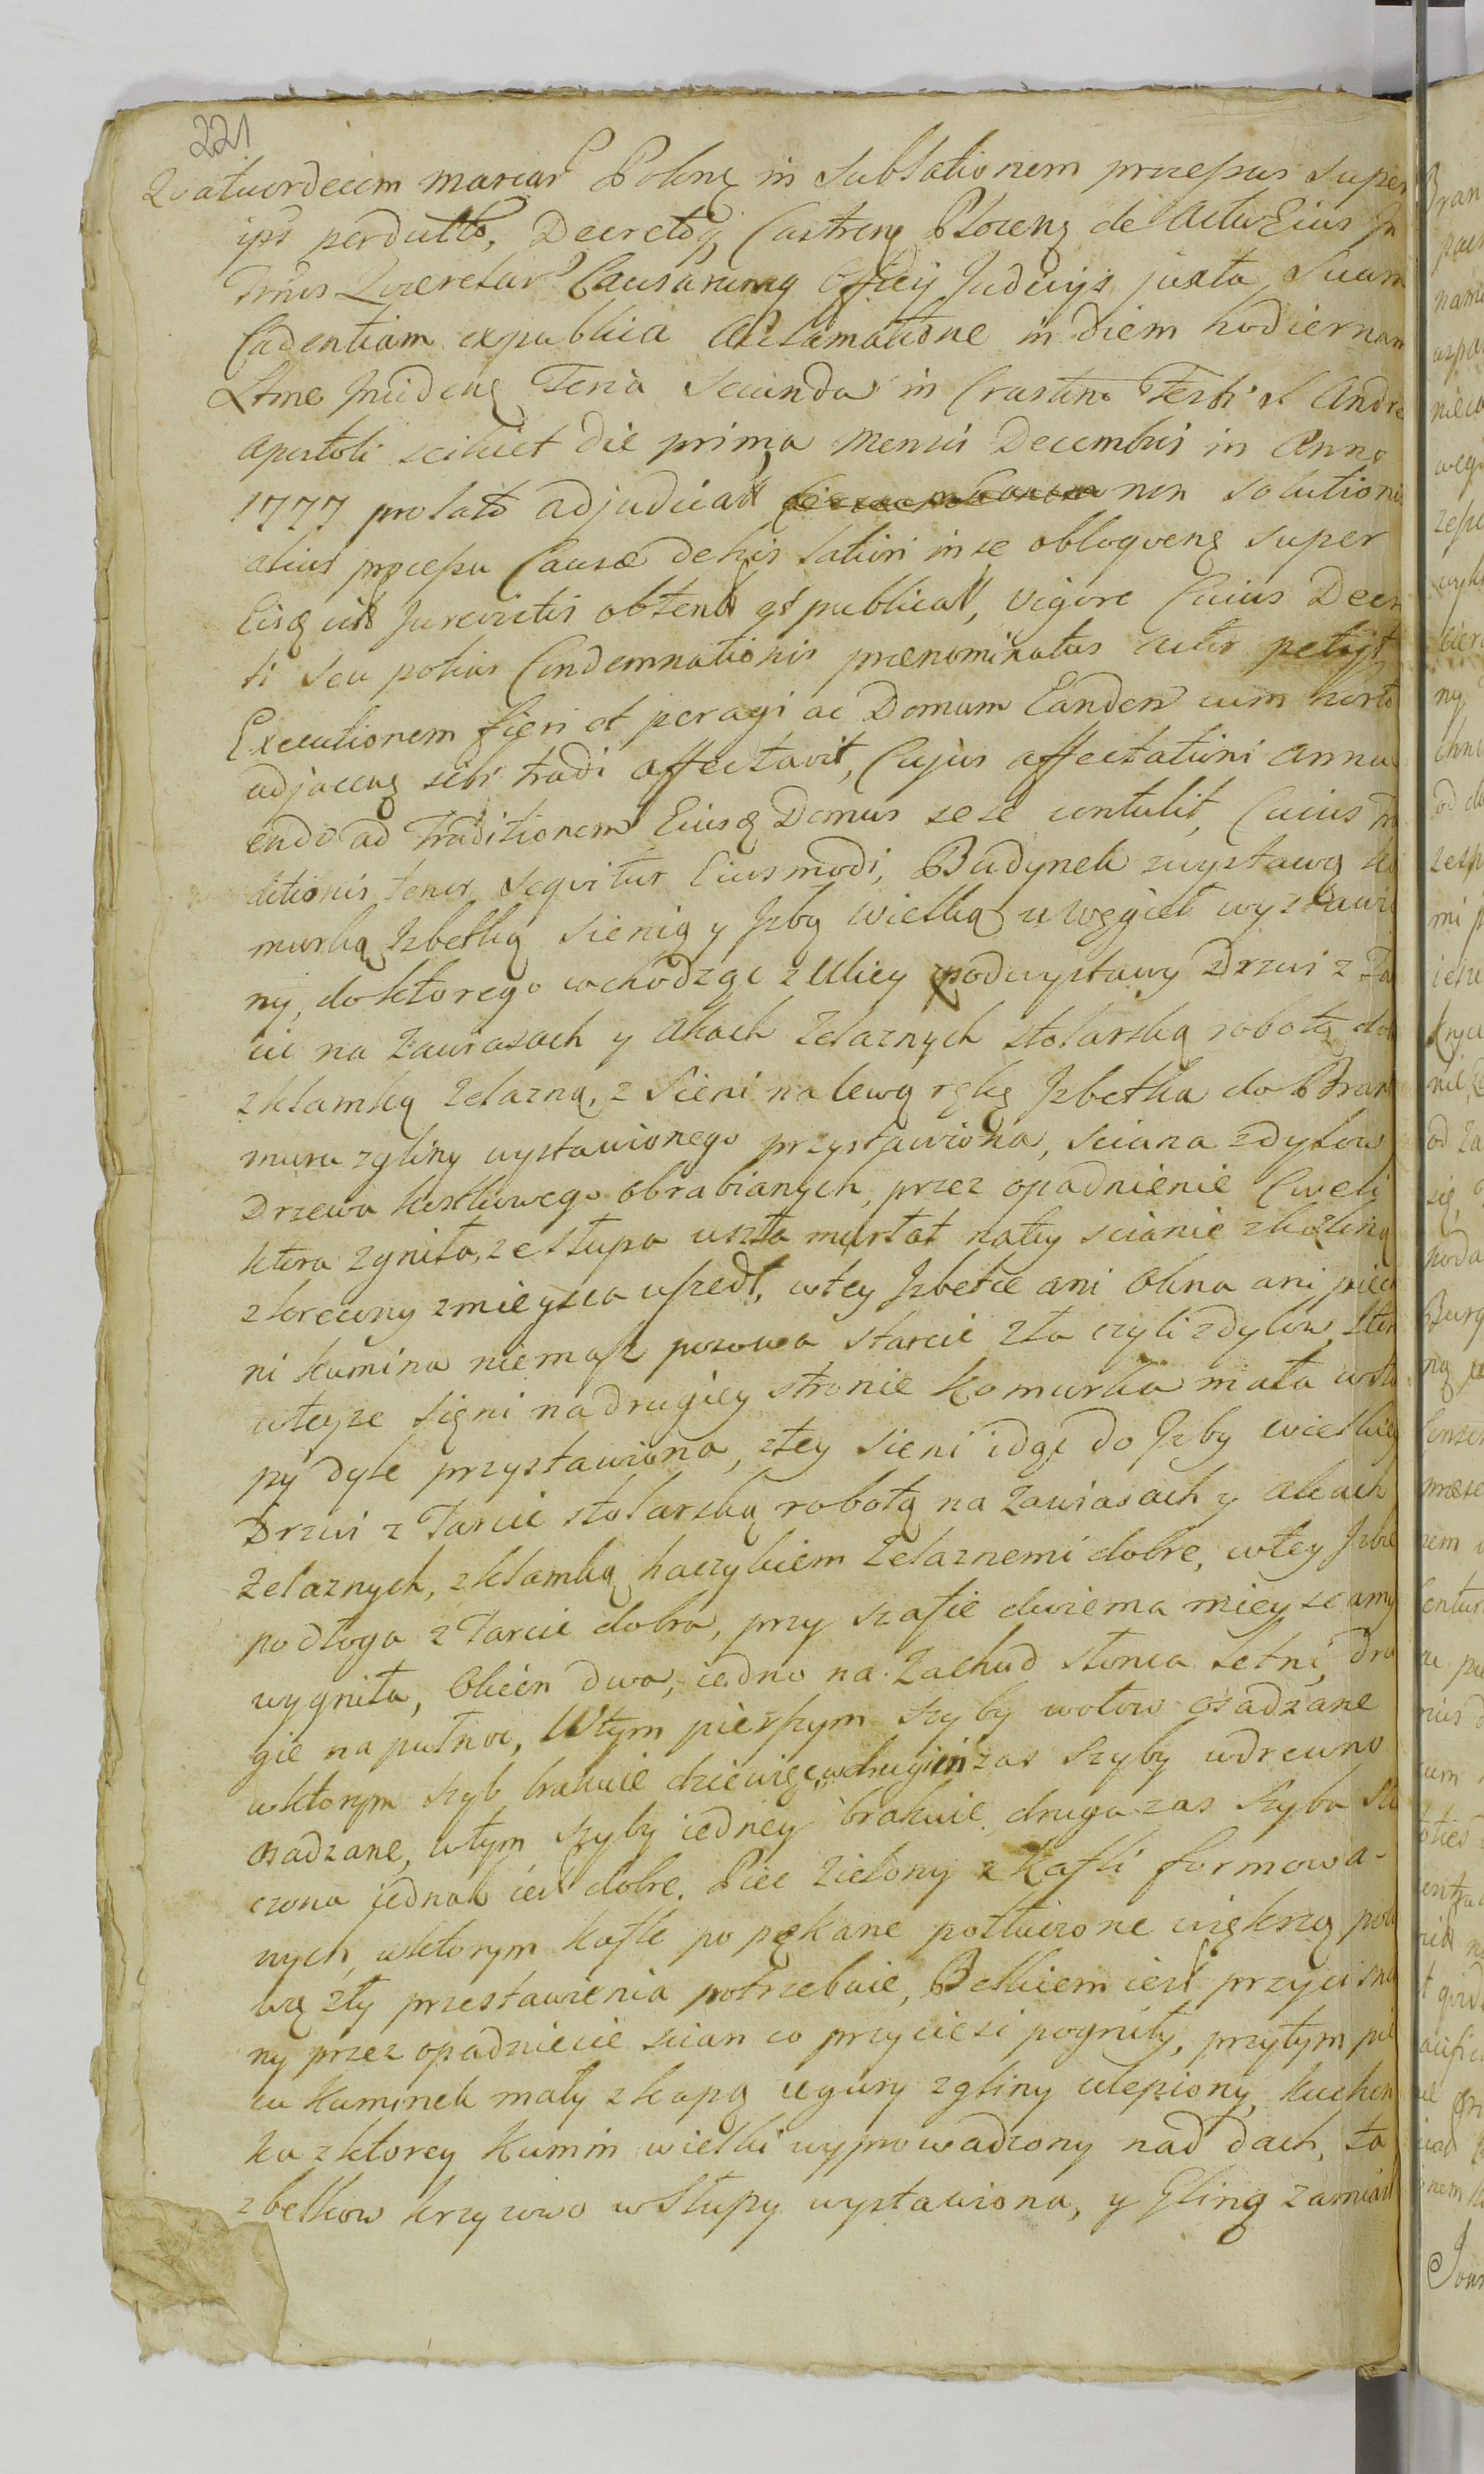 221
Quatuordecim marcar Polnę in Sublationem præssus super
ips perdutto, Decretoq Castreng Plocenę de Actu Eius In
Trnis Querelar Causarumq Officij Judicijs juxta Suam
Cadentiam expublica Acclamatione in diem hodiernam
Ltme Incideng Feria Secunda in Crastino Festi S Andre
Apostoli scilicet die prima Mensis Decembris in Anno
1777 prolato adjudicatt non solutioni
alius Causæ de his latiori in se obloqveng super
Eisq Jurevictis obtentt publicatt, vigore Cuius Decre
ti seu potius Condemnationis prænominatus Actor petijt
Executionem fieri et peragi ac Domum Eandem cum horto
adjaceng sibi tradi affectavit, Cujus affectationi annu
endo ad Traditionem Eiusq Domus sese contulit, Cuius Tra
ditionis tenor seqvitur Eiusmodi, Budynek zwystawą ko
murką Izbetką Sienią y Izbą wielką u węgieł wystawio
ny, do ktorego wchodząc z Ulicy podwystawy Drzwi z Ta
cic na Zawiasach y Akach Zelaznych stolarską robotą dob
z klamką Zelazną, z Sieni na lewą rękę Izbetka do Brant
muru zgliny wystawionego przystawiona, Sciana zdylow
Drzewa kostkowego obrabianych, przez opadnienie Cweli
ktora zgniła, ze Słupa uszła murłat natey scianie zkozliną
zkrecony zmieysca uszedł, wtey Izbetce ani Okna ani pieca
ni kamina niemasz posowa starcic zła czyli zdylow,
wteyze Sieni nadrugiey stronie Komurka mała wsłu
py dyle przystawiona, ztey Sieni idąc do Izby wielkiey
Drzwi z Tarcic stolarską robotą na Zawiasach y akach
Zelaznych, zklamką haczykiem Zelaznemi dobre, wtey Izbie
podłoga z Tarcic dobra, przy szafie dwiema mieyscamy
wygniła, Okien dwa, iedno na Zachud słonca Letni, dru
gie na pułnoc, Wtym pierszym szyby wołow osadzane
wktorym szyb brakuie dziewięc, wdrugim zas Szyby wdrewno
osadzane, wtym szyby iedney brakuie, druga zas Szyba stu
czona iednak iest dobre. Piec Zielony z Kafli formowa-
nych, wktorym kafle popękane potłuczone większą poło
wą zły przestawienia potrzebuie, Belkiem iest przycisnio
ny przez opadniecie scian co przyciesi pogniły, przytym pie
cu Kaminek mały zkapą ugury zgliny ulepiony, kuchen
ka zktorey Kumin wielki wyprowadzony nad dach, ta
zbelkow krzywo w Słupy wystawiona, y Gliną zamiast